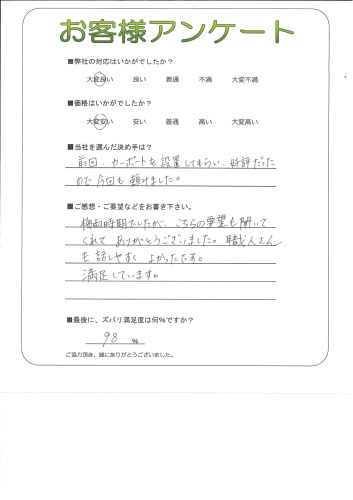 お客様アンケート
■弊社の対応はいかがでしたか？
大変良い 良い 普通 不満 大変不満
■価格はいかがでしたか？
大変安い 安い 普通 高い 大変高い
■当社を選んだ決め手は？
前回、カーポートを設置してもらい、好評だった
ので今回も頼けました。
■ご感想・ご要望などをお書き下さい。
梅雨時期でしたが、こちらの要望も聞いて
くれてありがとうございました。職人さん
も話しやすくよかったです。
満足しています。
■最後に、ズバリ満足度は何％ですか？
98 %
ご協力頂き、誠にありがとうございました。